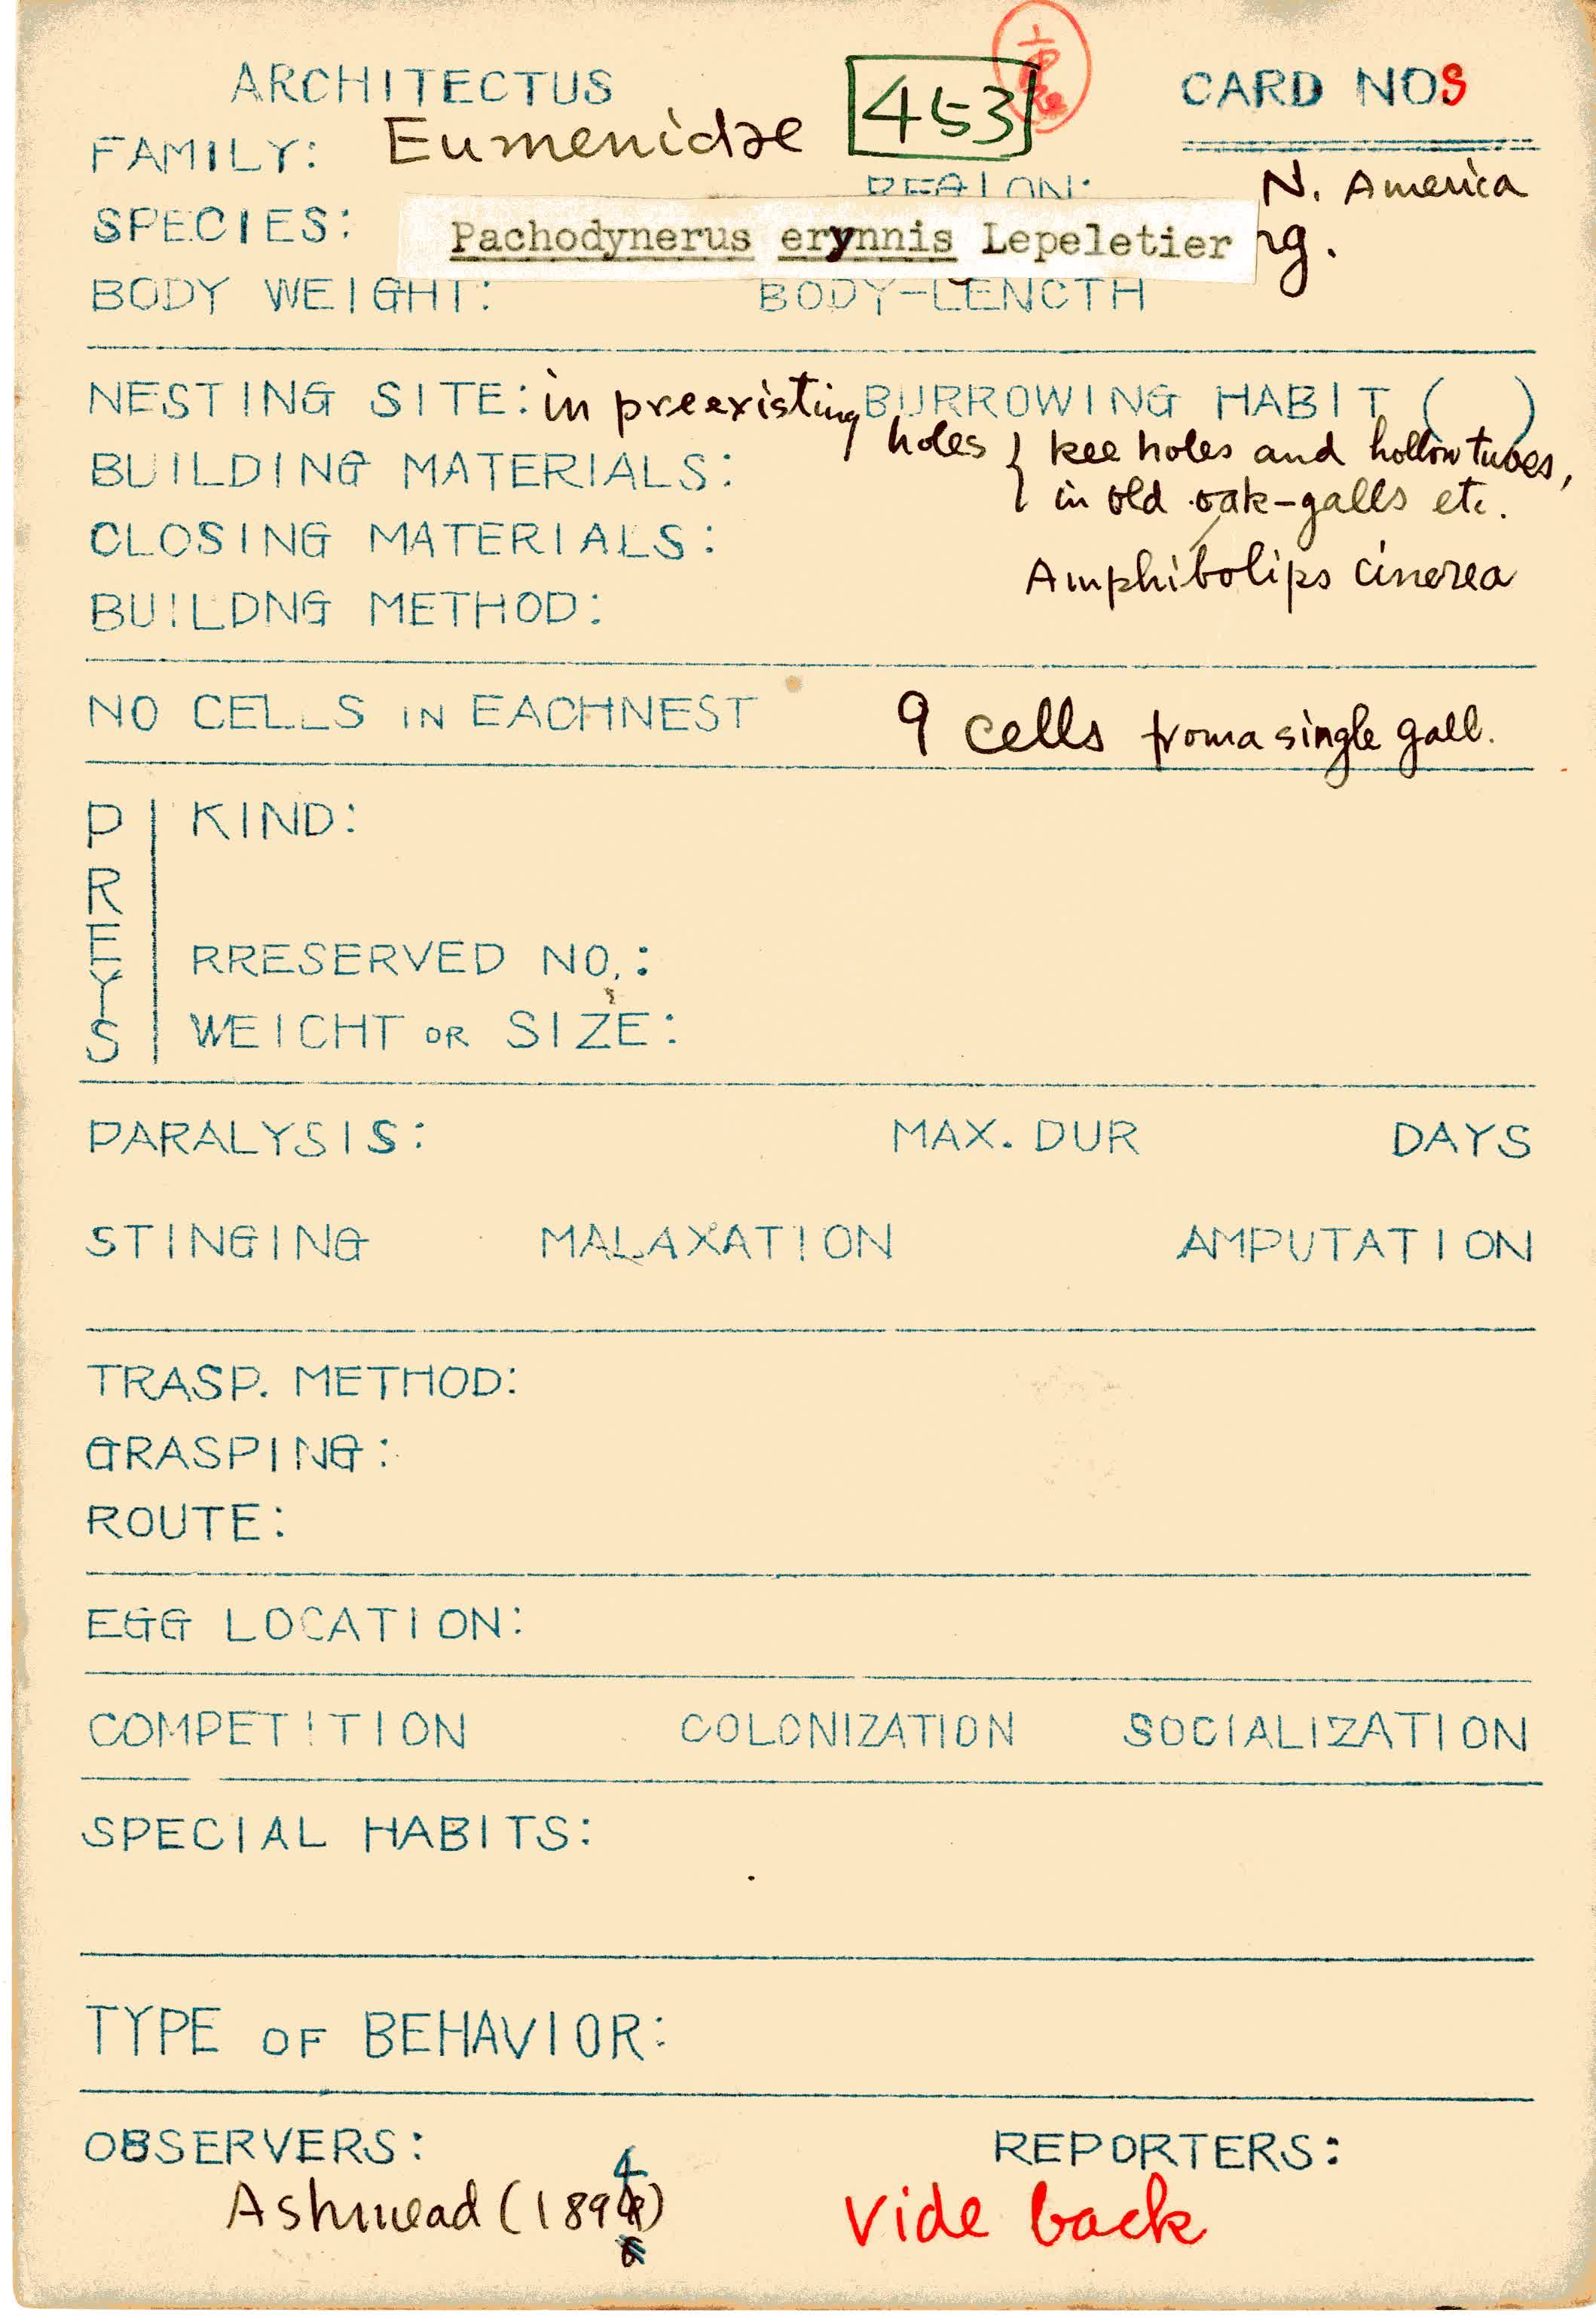 ARCHITECTUS
453
CARD NOS
FAMILY: Eumenidae
REGION: N. America
SPECIES: Pachodynerus erynnis Lepeletier
BODY WEIGHT: BODY-LENCTH
NESTING SITE: in preexisting holes BURROWING HABIT ( )
kee holes and hollow tubes,
BUILDING MATERIALS:
in old oak-galls etc.
CLOSING MATERIALS:
Amphibolips cinerea
BUILDNG METHOD:
NO CELLS IN EACHNEST 9 cells from a single gall.
PREYS
KIND:
RRESERVED NO.:
WEICHT OR SIZE:
PARALYSIS: MAX. DUR DAYS
STINGING MALAXATION AMPUTATION
TRASP. METHOD:
GRASPING:
ROUTE:
EGG LOCATION:
COMPETITION COLONIZATION SOCIALIZATION
SPECIAL HABITS:
TYPE OF BEHAVIOR:
OBSERVERS: REPORTERS:
Ashmead (1894) vide back